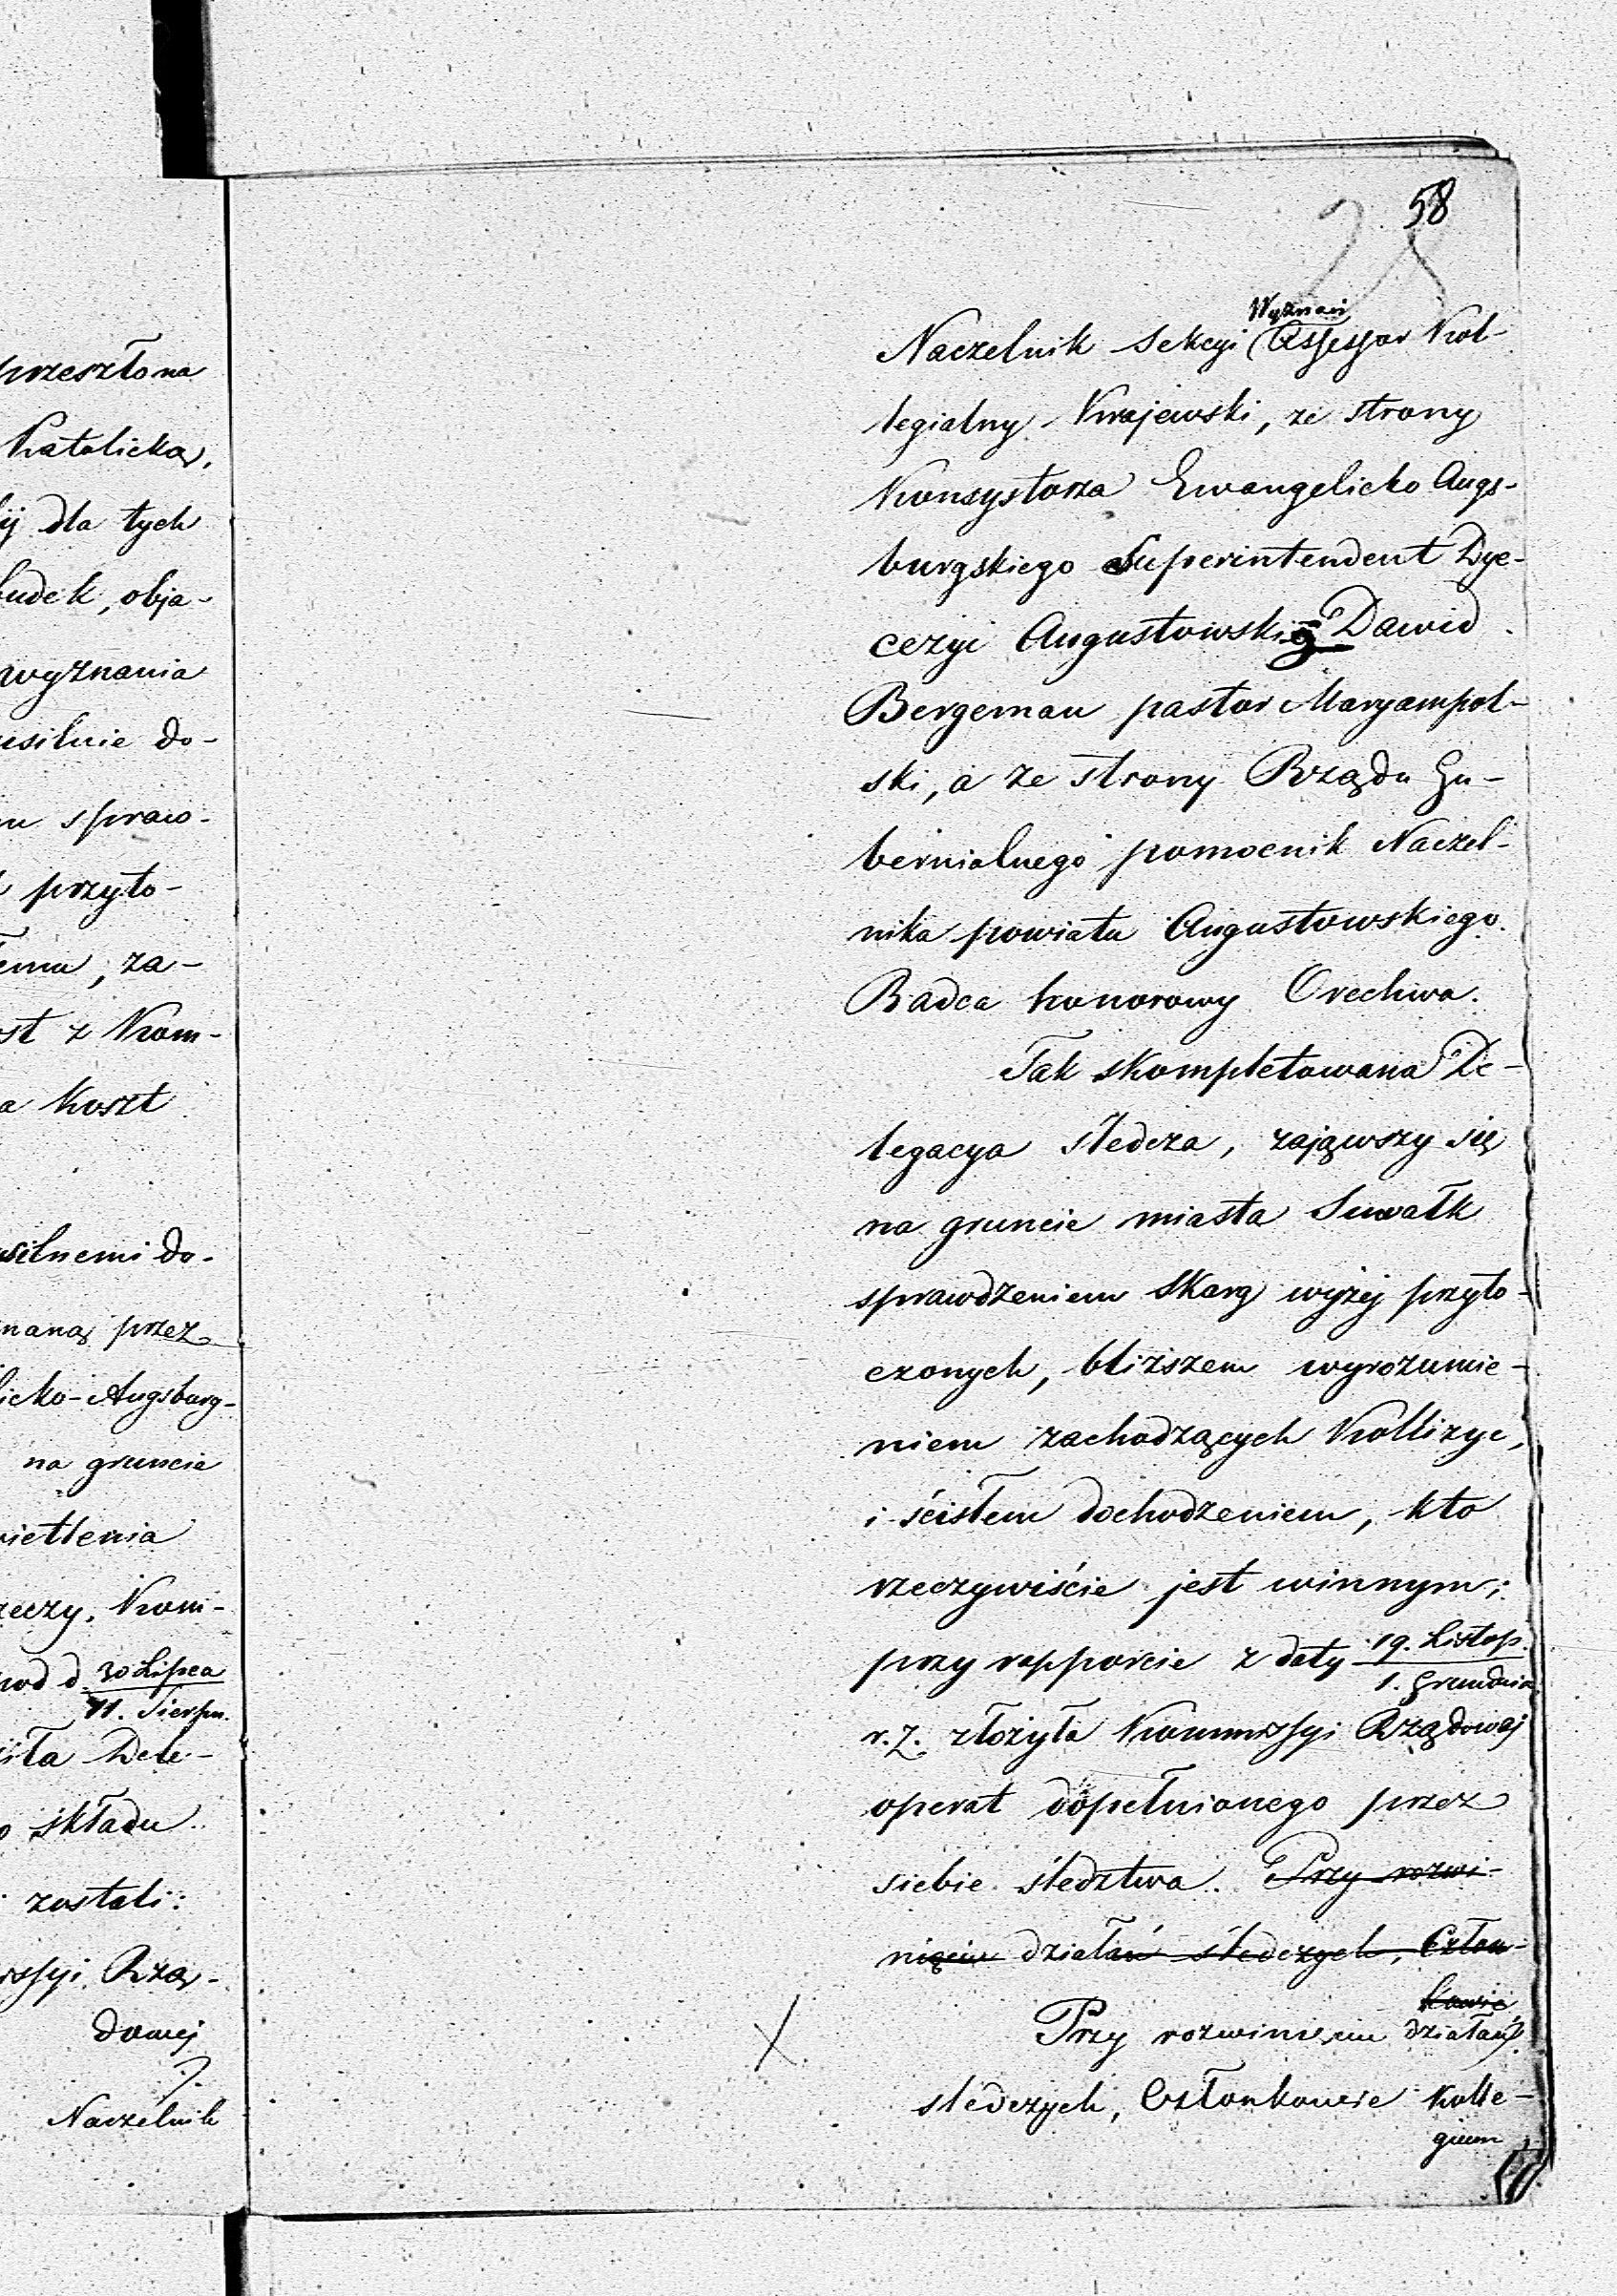 przeszło na
Katolicką,
ij dla tych
budek, obja-
wyznania
usilnie do-
spraw-
przyto-
temu, za-
st z Kom-
a koszt
usilnemi do-
naną przez
icko-Augsburg-
na gruncie
wietlenia
rzeczy. Kom-
pod d. 30 Lipca
11. Sierpn.
iła Dele-
o składu
zostali:
issyi Rzą-
dowej
Naczelnik
58
28
Wyznań
Naczelnik Sekcyi Assessor Kol-
legialny Krajewski, ze strony
Konsystorza Ewangelicko Augs-
burgskiego Superintendent Dye-
cezyi Augustowskiej Dawid
Bergeman pastor Maryampol-
ski, a ze strony Rządu Gu-
bernialnego pomocnik Naczel-
nika powiatu Augustowskiego
Radca honorowy Orechwa.
Tak skompletowana De-
legacya śledcza, zająwszy się
na gruncie miasta Suwałk
sprawdzeniem skarg wyżej przyto-
czonych, bliższem wyrozumie-
niem zachodzących Kollizyi,
i ścisłem dochodzeniem, kto
rzeczywiście jest winnym;
przy rapporcie z daty 19. Listop.
1. Grudnia
r. z. złożyła Kommissyi Rządowej
operat dopełnionego przez
siebie śledztwa. Przy rozwi-
nięciu działań śledczych, Człon-
kowie
Przy rozwinięciu działań
śledczych, Członkowie Kolle-
gium